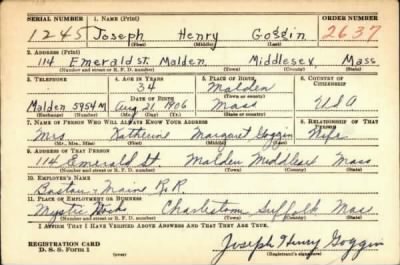 SERIAL NUMBER 1. NAME (Print) ORDER NUMBER
1245 Joseph Henry Goggin 2637
(First) (Middle) (Last)
2. ADDRESS (Print)
114 Emerald St. Malden. Middlesex Mass
(Number and street or R. F. D. number) (Town) (County) (State)
3. TELEPHONE 4. AGE IN YEARS 5. PLACE OF BIRTH 6. COUNTRY OF CITIZENSHIP
34 Malden
DATE OF BIRTH (Town or county)
Malden 5954M Aug 21 1906 Mass USA
(Exchange) (Number) (Mo.) (Day) (Yr.) (State or country)
7. NAME OF PERSON WHO WILL ALWAYS KNOW YOUR ADDRESS 8. RELATIONSHIP OF THAT PERSON
Mrs. Katherine Margaret Goggin Wife
(Mr., Mrs., Miss) (First) (Middle) (Last)
9. ADDRESS OF THAT PERSON
114 Emerald St Malden Middlesex Mass
(Number and street or R. F. D. number) (Town) (County) (State)
10. EMPLOYER'S NAME
Boston & Maine R.R.
11. PLACE OF EMPLOYMENT OR BUSINESS
Mystic Charlestown Suffolk Mass
(Number and street or R. F. D. number) (Town) (County) (State)
I AFFIRM THAT I HAVE VERIFIED ABOVE ANSWERS AND THAT THEY ARE TRUE.
REGISTRATION CARD
D. S. S. Form 1 (over) Joseph Henry Goggin
(Registrant's signature)